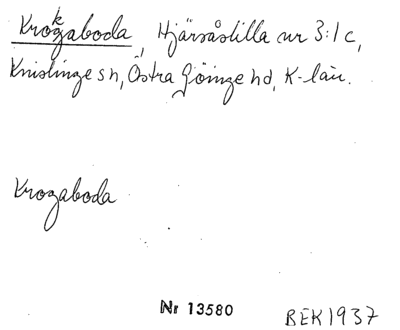 Krogaboda, Hjärsåslilla nr 3:1c,
Knislinge sn, Östra Göinge hd, K-län.
Krogaboda
Nr 13580
BEK 1937